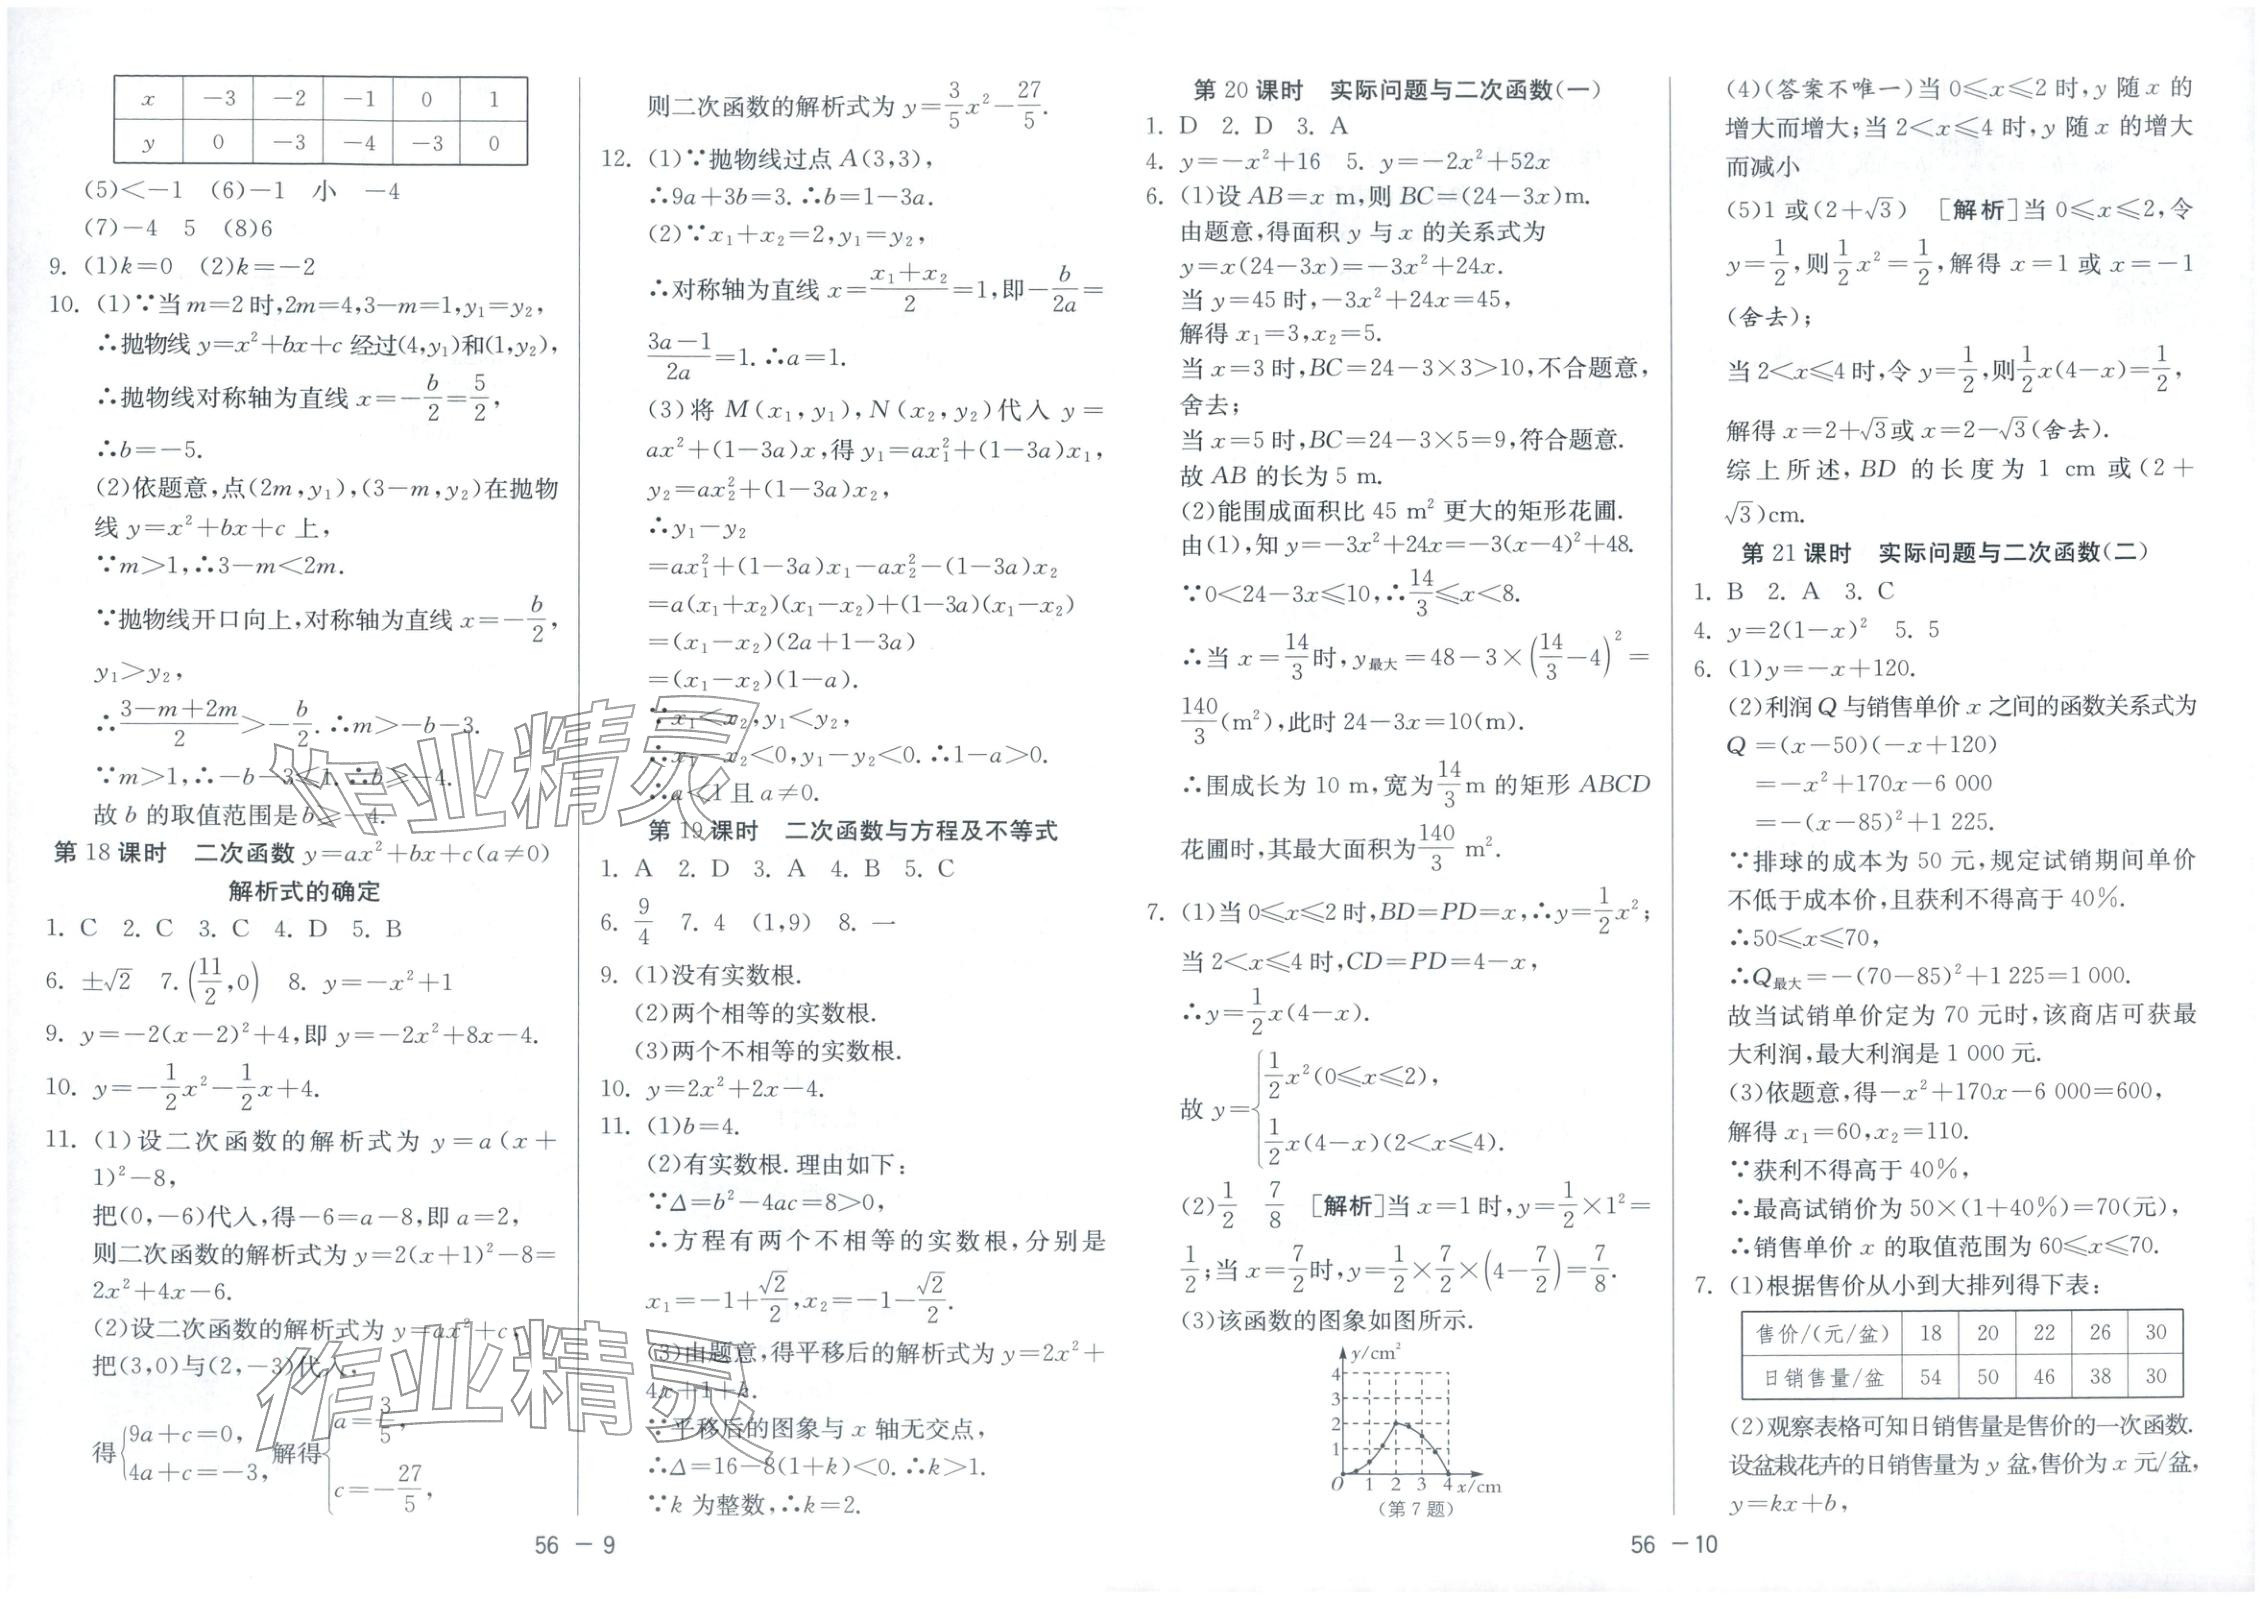 x −3 −2 −1 0 1
y 0 −3 −4 −3 0
(5)<−1 (6)−1 小 −4
(7)−4 5 (8)6
9. (1)k=0 (2)k=−2
10. (1)∵当m=2时,2m=4,3−m=1,y₁=y₂,
∴抛物线y=x²+bx+c经过(4,y₁)和(1,y₂),
∴抛物线对称轴为直线x=−b/2=5/2,
∴b=−5.
(2)依题意,点(2m,y₁),(3−m,y₂)在抛物
线y=x²+bx+c上,
∵m>1,∴3−m<2m.
∵抛物线开口向上,对称轴为直线x=−b/2,
y₁>y₂,
∴(3−m+2m)/2>−b/2.∴m>−b−3.
∵m>1,∴−b−3≤1.∴b≥−4.
故b的取值范围是b≥−4.
第18课时 二次函数y=ax²+bx+c(a≠0)
解析式的确定
1. C 2. C 3. C 4. D 5. B
6. ±√2 7. (11/2,0) 8. y=−x²+1
9. y=−2(x−2)²+4,即y=−2x²+8x−4.
10. y=−1/2x²−1/2x+4.
11. (1)设二次函数的解析式为y=a(x+
1)²−8,
把(0,−6)代入,得−6=a−8,即a=2,
则二次函数的解析式为y=2(x+1)²−8=
2x²+4x−6.
(2)设二次函数的解析式为y=ax²+c,
把(3,0)与(2,−3)代入,
得{9a+c=0, 4a+c=−3, 解得{a=3/5, c=−27/5,
则二次函数的解析式为y=3/5x²−27/5.
12. (1)∵抛物线过点A(3,3),
∴9a+3b=3.∴b=1−3a.
(2)∵x₁+x₂=2,y₁=y₂,
∴对称轴为直线x=(x₁+x₂)/2=1,即−b/2a=
(3a−1)/2a=1.∴a=1.
(3)将M(x₁,y₁),N(x₂,y₂)代入y=
ax²+(1−3a)x,得y₁=ax₁²+(1−3a)x₁,
y₂=ax₂²+(1−3a)x₂,
∴y₁−y₂
=ax₁²+(1−3a)x₁−ax₂²−(1−3a)x₂
=a(x₁+x₂)(x₁−x₂)+(1−3a)(x₁−x₂)
=(x₁−x₂)(2a+1−3a)
=(x₁−x₂)(1−a).
∵x₁<x₂,y₁<y₂,
∴x₁−x₂<0,y₁−y₂<0.∴1−a>0.
∴a<1且a≠0.
第19课时 二次函数与方程及不等式
1. A 2. D 3. A 4. B 5. C
6. 9/4 7. 4 (1,9) 8. 一
9. (1)没有实数根.
(2)两个相等的实数根.
(3)两个不相等的实数根.
10. y=2x²+2x−4.
11. (1)b=4.
(2)有实数根.理由如下:
∵Δ=b²−4ac=8>0,
∴方程有两个不相等的实数根,分别是
x₁=−1+√2/2,x₂=−1−√2/2.
(3)由题意,得平移后的解析式为y=2x²+
4x+1+k.
∵平移后的图象与x轴无交点,
∴Δ=16−8(1+k)<0.∴k>1.
∵k为整数,∴k=2.
56 − 9
第20课时 实际问题与二次函数(一)
1. D 2. D 3. A
4. y=−x²+16 5. y=−2x²+52x
6. (1)设AB=x m,则BC=(24−3x)m.
由题意,得面积y与x的关系式为
y=x(24−3x)=−3x²+24x.
当y=45时,−3x²+24x=45,
解得x₁=3,x₂=5.
当x=3时,BC=24−3×3>10,不合题意,
舍去;
当x=5时,BC=24−3×5=9,符合题意.
故AB的长为5 m.
(2)能围成面积比45 m²更大的矩形花圃.
由(1),知y=−3x²+24x=−3(x−4)²+48.
∵0<24−3x≤10,∴14/3≤x<8.
∴当x=14/3时,y最大=48−3×(14/3−4)²=
140/3(m²),此时24−3x=10(m).
∴围成长为10 m,宽为14/3m的矩形ABCD
花圃时,其最大面积为140/3 m².
7. (1)当0≤x≤2时,BD=PD=x,∴y=1/2x²;
当2<x≤4时,CD=PD=4−x,
∴y=1/2x(4−x).
故y={1/2x²(0≤x≤2), 1/2x(4−x)(2<x≤4).
(2)1/2 7/8 [解析]当x=1时,y=1/2×1²=
1/2;当x=7/2时,y=1/2×7/2×(4−7/2)=7/8.
(3)该函数的图象如图所示.
y/cm²
4
3
2
1
O 1 2 3 4 x/cm
(第7题)
(4)(答案不唯一)当0≤x≤2时,y随x的
增大而增大;当2<x≤4时,y随x的增大
而减小
(5)1或(2+√3) [解析]当0≤x≤2,令
y=1/2,则1/2x²=1/2,解得x=1或x=−1
(舍去);
当2<x≤4时,令y=1/2,则1/2x(4−x)=1/2,
解得x=2+√3或x=2−√3(舍去).
综上所述,BD的长度为1 cm或(2+
√3)cm.
第21课时 实际问题与二次函数(二)
1. B 2. A 3. C
4. y=2(1−x)² 5. 5
6. (1)y=−x+120.
(2)利润Q与销售单价x之间的函数关系式为
Q=(x−50)(−x+120)
=−x²+170x−6 000
=−(x−85)²+1 225.
∵排球的成本为50元,规定试销期间单价
不低于成本价,且获利不得高于40%.
∴50≤x≤70,
∴Q最大=−(70−85)²+1 225=1 000.
故当试销单价定为70元时,该商店可获最
大利润,最大利润是1 000元.
(3)依题意,得−x²+170x−6 000=600,
解得x₁=60,x₂=110.
∵获利不得高于40%,
∴最高试销价为50×(1+40%)=70(元),
∴销售单价x的取值范围为60≤x≤70.
7. (1)根据售价从小到大排列得下表:
售价/(元/盆) 18 20 22 26 30
日销售量/盆 54 50 46 38 30
(2)观察表格可知日销售量是售价的一次函数.
设盆栽花卉的日销售量为y盆,售价为x元/盆,
y=kx+b,
56 −10
作业精灵
作业精灵